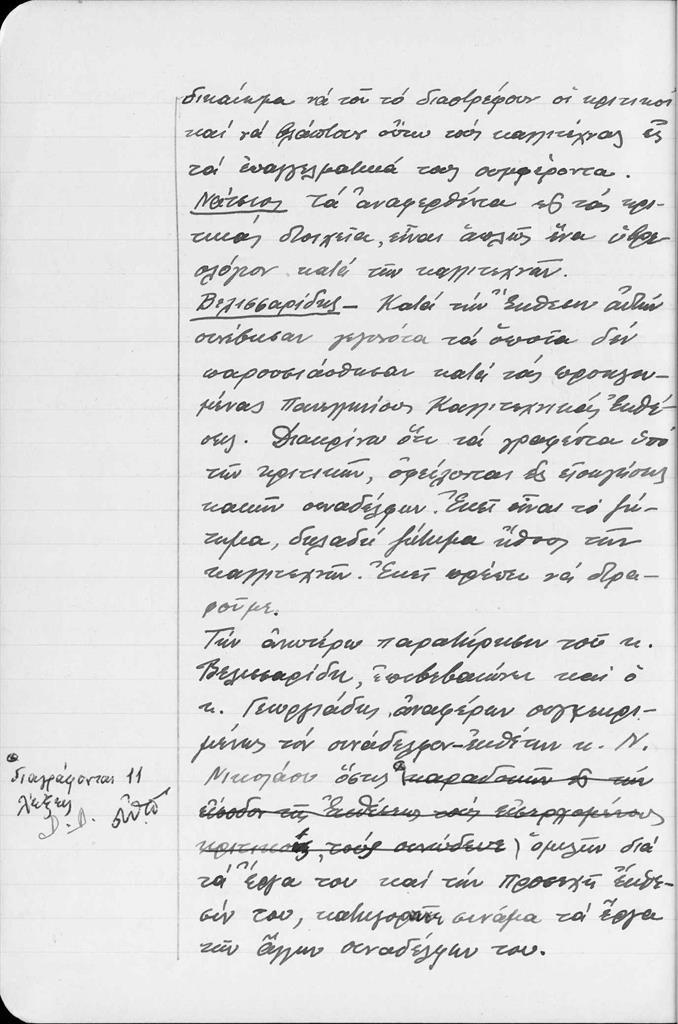 δικαίωμα νά τοῦ τό διαστρέφουν οἱ κριτικοί
καί νά βλάπτουν οὕτω τούς καλλιτέχνας εἰς
τά ἐπαγγελματικά τους συμφέροντα.
Νάτσιος Τά ἀναφερθέντα εἰς τάς κρι-
τικάς στοιχεῖα, εἶναι ἁπλῶς ἕνα ὑβρε-
ολόγιον κατά τῶν καλλιτεχνῶν.
Βελισσαρίδης – Κατά τήν Ἔκθεσιν αὐτήν
συνέβησαν γεγονότα τά ὁποῖα δέν
παρουσιάσθησαν κατά τάς προηγου-
μένας Πανελληνίους Καλλιτεχνικάς Ἐκθέ-
σεις. Διακρίνω ὅτι τά γραφέντα ὑπό
τῶν κριτικῶν, ὀφείλονται εἰς εἰσηγήσεις
κακῶν συναδέλφων. Ἐκεῖ εἶναι τό ζή-
τημα, δηλαδή ζήτημα ἤθους τῶν
καλλιτεχνῶν. Ἐκεῖ πρέπει νά στρα-
φοῦμε.
Τήν ἀνωτέρω παρατήρησιν τοῦ κ.
Βελισσαρίδη, ἐπιβεβαιώνει καί ὁ
κ. Γεωργιάδης ἀναφέρων συγκεκρι-
μένως τόν συνάδελφον-ἐκθέτην κ. Ν.
Νικολάου ὅστις παραδοθεὶς εἰς τήν
εἴσοδον τῆς Ἐκθέσεως τούς εἰσερχομένους
κριτικούς, τούς συνώδευε) ὁμιλῶν διά
τά ἔργα του καί τήν προσεχῆ ἔκθε-
σίν του, κατηγορῶν συνάμα τά ἔργα
τῶν ἄλλων συναδέλφων του.
διαγράφονται 11
λέξεις